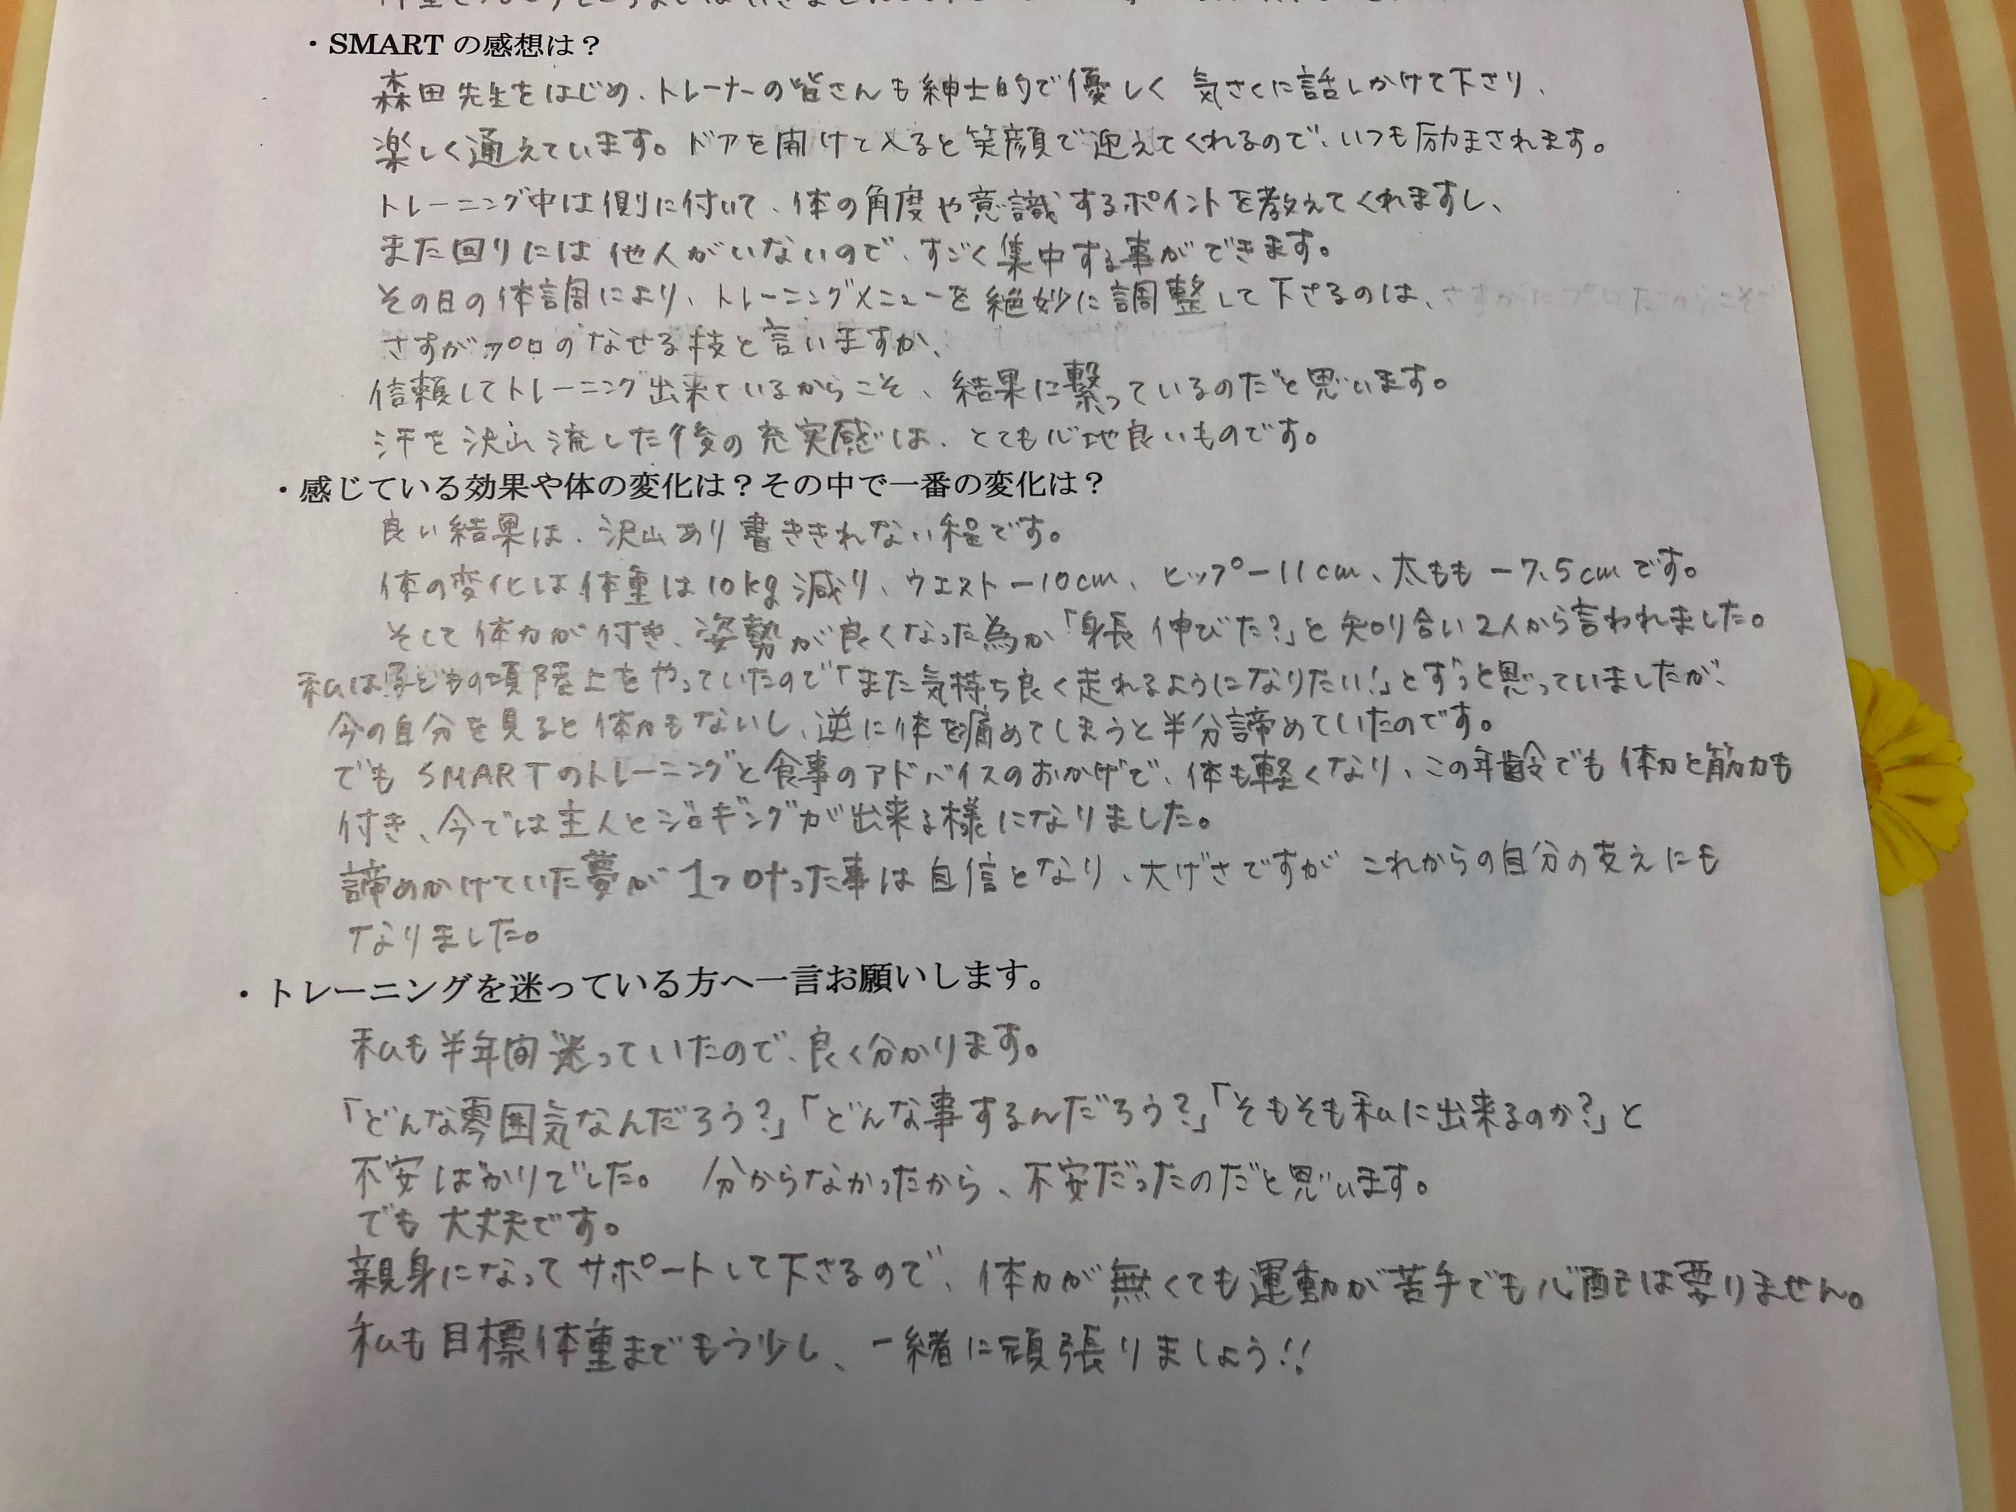 ・SMARTの感想は？
森田先生をはじめ、トレーナーの皆さんも紳士的で優しく 気さくに話しかけて下さり、
楽しく通えています。ドアを開けて入ると笑顔で迎えてくれるので、いつも励まされます。
トレーニング中は側に付いて、体の角度や意識するポイントを教えてくれますし、
また回りには他人がいないので、すごく集中する事ができます。
その日の体調により、トレーニングメニューを絶妙に調整して下さるのは、
さすがプロのなせる技と言いますか、
信頼してトレーニング出来ているからこそ、結果に繋っているのだと思います。
汗を沢山流した後の充実感は、とても心地良いものです。
・感じている効果や体の変化は？その中で一番の変化は？
良い結果は、沢山あり書ききれない程です。
体の変化は体重は10kg減り、ウエスト－10cm、ヒップ－11cm、太もも－7.5cmです。
そして体力が付き、姿勢が良くなった為か「身長伸びた？」と知り合い2人から言われました。
私は子どもの頃陸上をやっていたので「また気持ち良く走れるようになりたい！」とずっと思っていましたが、
今の自分を見ると体力もないし、逆に体を痛めてしまうと半分諦めていたのです。
でもSMARTのトレーニングと食事のアドバイスのおかげで、体も軽くなり、この年齢でも体力と筋力も
付き、今では主人とジョギングが出来る様になりました。
諦めかけていた夢が1つ叶った事は自信となり、大げさですが これからの自分の支えにも
なりました。
・トレーニングを迷っている方へ一言お願いします。
私も半年間迷っていたので、良く分かります。
「どんな雰囲気なんだろう？」「どんな事するんだろう？」「そもそも私に出来るのか？」と
不安ばかりでした。 分からなかったから、不安だったのだと思います。
でも大丈夫です。
親身になってサポートして下さるので、体力が無くても運動が苦手でも心配は要りません。
私も目標体重までもう少し、一緒に頑張りましょう!!